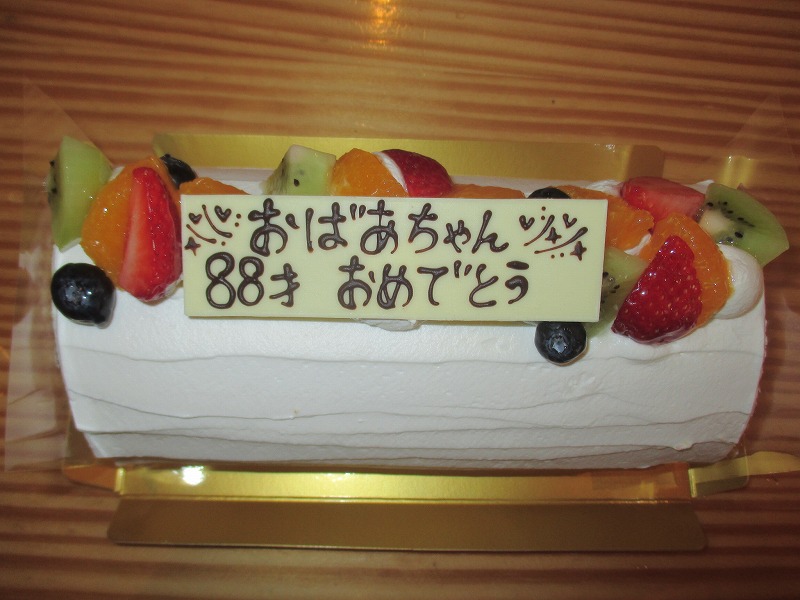 おばあちゃん
88才 おめでとう